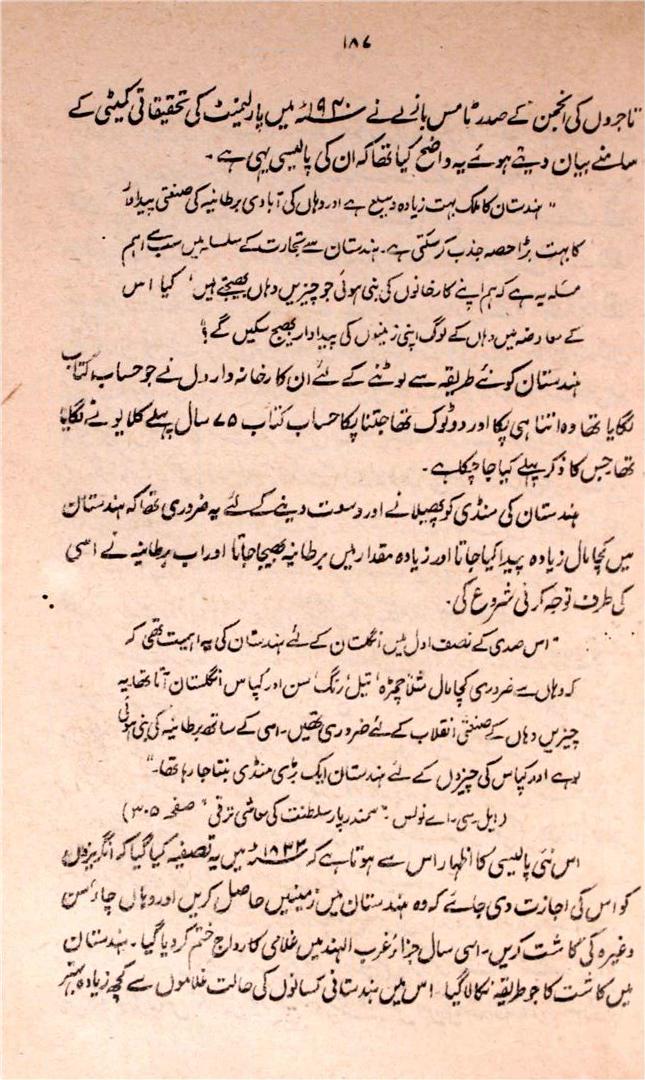 ۱۸۷
"تاجروں کی انجمن" کے صدر ٹامس بازلے نے ۱۹۴۰ئہ میں پارلیمنٹ کی تحقیقاتی کمیٹی کے
سامنے بیان دیتے ہوئے یہ واضح کیا تھا کہ ان کی پالیسی یہی ہے۔
"ہندستان کا ملک بہت زیادہ وسیع ہے اور وہاں کی آبادی برطانیہ کی صنعتی پیداوار
کا بہت بڑا حصہ جذب کر سکتی ہے۔ ہندستان سے تجارت کے سلسلہ میں سب سے اہم
مسئلہ یہ ہے کہ ہم اپنے کارخانوں کی بنی ہوئی جو چیزیں وہاں بھیجتے ہیں، کیا اس
کے معاوضہ میں وہاں کے لوگ اپنی زمینوں کی پیداوار بھیج سکیں گے؟"
ہندستان کو نئے طریقہ سے لوٹنے کے لئے ان کارخانہ داروں نے جو حساب کتاب
لگایا تھا وہ اتنا ہی پکا اور دو ٹوک تھا جتنا پکا حساب کتاب ۷۵ سال پہلے کلایو نے لگایا
تھا جس کا ذکر پہلے کیا جا چکا ہے۔
ہندستان کی منڈی کو پھیلانے اور وسعت دینے کے لئے یہ ضروری تھا کہ ہندستان
میں کچا مال زیادہ پیدا کیا جاتا اور زیادہ مقدار میں برطانیہ بھیجا جاتا اور اب برطانیہ نے اسی
کی طرف توجہ کرنی شروع کی۔
"اس صدی کے نصف اول میں انگلستان کے لئے ہندستان کی یہ اہمیت تھی کہ
کہ وہاں سے ضروری کچا مال مثلاً چمڑہ، تیل، رنگ، سن اور کپاس انگلستان آتا تھا۔ یہ
چیزیں وہاں کے صنعتی انقلاب کے لئے ضروری تھیں۔ اسی کے ساتھ برطانیہ کی بنی ہوئی
لوہے اور کپاس کی چیزوں کے لئے ہندستان ایک بڑی منڈی بنتا جا رہا تھا۔"
(ایل۔سی۔اے نولس۔ "سمندر پار سلطنت کی معاشی ترقی" صفحہ ۳۰۵)
اس نئی پالیسی کا اظہار اس سے ہوتا ہے کہ ۱۸۳۳ئہ میں یہ تصفیہ کیا گیا کہ انگریزوں
کو اس کی اجازت دی جائے کہ وہ ہندستان میں زمینیں حاصل کریں اور وہاں چاء، سن
وغیرہ کی کاشت کریں۔ اسی سال جزائر غرب الہند میں غلامی کا رواج ختم کر دیا گیا۔ ہندستان
میں کاشت کا جو طریقہ نکالا گیا۔ اس میں ہندستانی کسانوں کی حالت غلاموں سے کچھ زیادہ بہتر